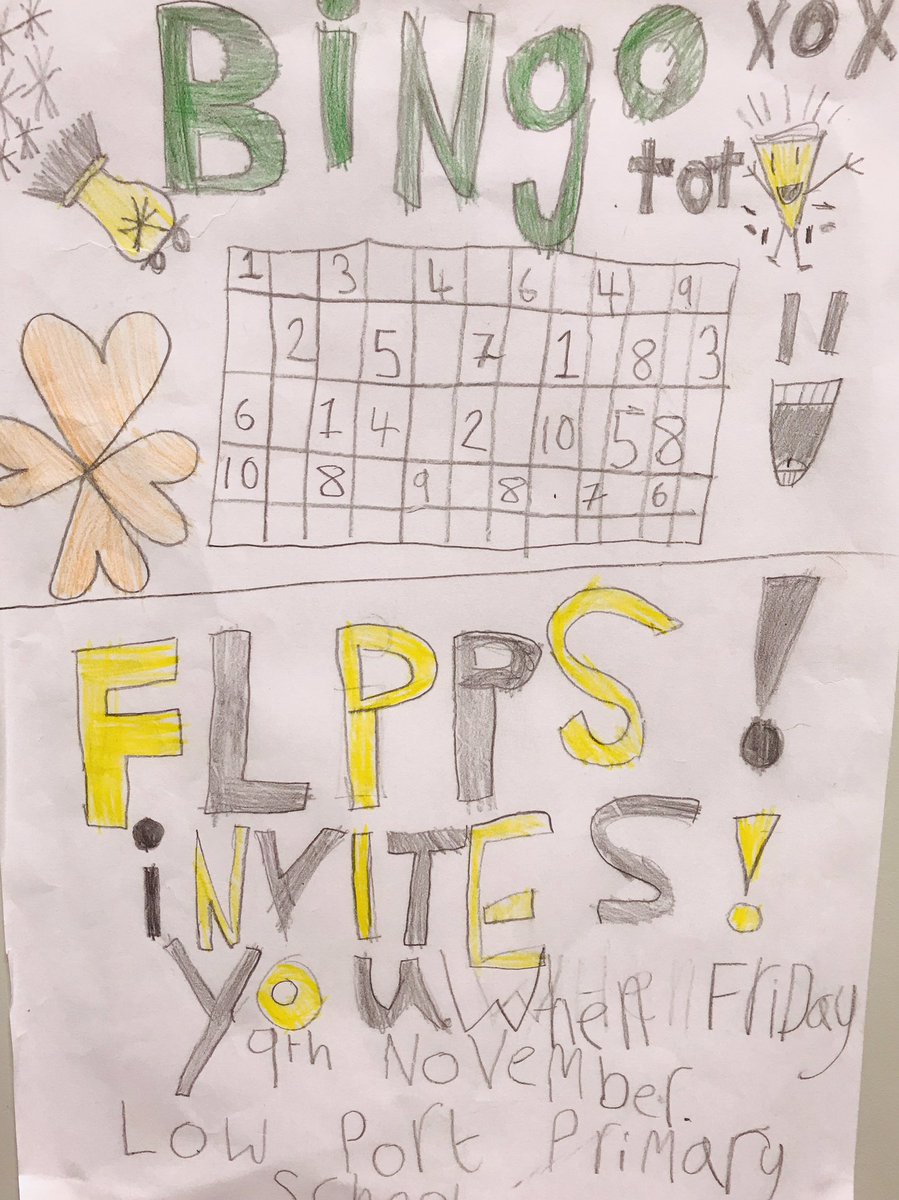 BiNgo
xox
tot
1 3 4 6 4 9
2 5 7 1 8 3
6 1 4 2 10 5 8
10 8 9 8 7 6
FLPPS!
iNVITES!
You When FriDay
9th November
Low Port Primary
School